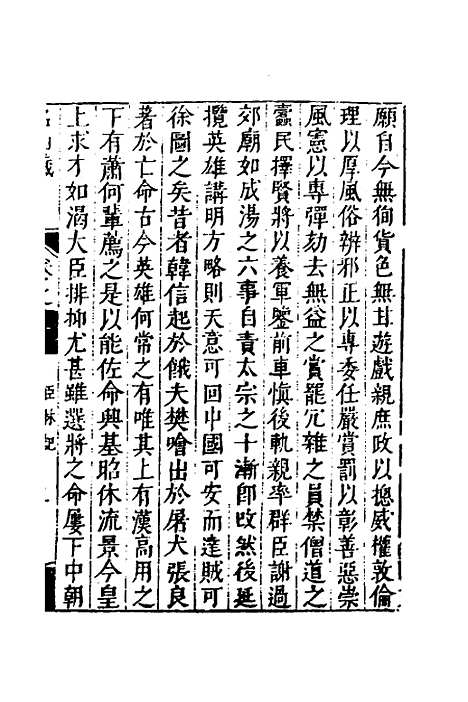 願自今無徇貨色無耽遊戲親庶政以揔威權敦倫
理以厚風俗辨邪正以專委任嚴賞罰以彰善惡崇
風憲以專彈劾去無益之賞罷冗雜之員禁僧道之
蠹民擇賢將以養軍鑒前車慎後軌親率群臣謝過
郊廟如成湯之六事自責太宗之十漸即改然後延
攬英雄講明方略則天意可回中國可安而達賊可
徐圖之矣昔者韓信起於餓夫樊噲出於屠犬張良
著於亡命古今英雄何常之有唯其上有漢高用之
下有蕭何輩薦之是以能佐命興基昭休流景今皇
上求才如渴大臣排抑尤甚雖選將之命屢下中朝
名山藏
臣林記